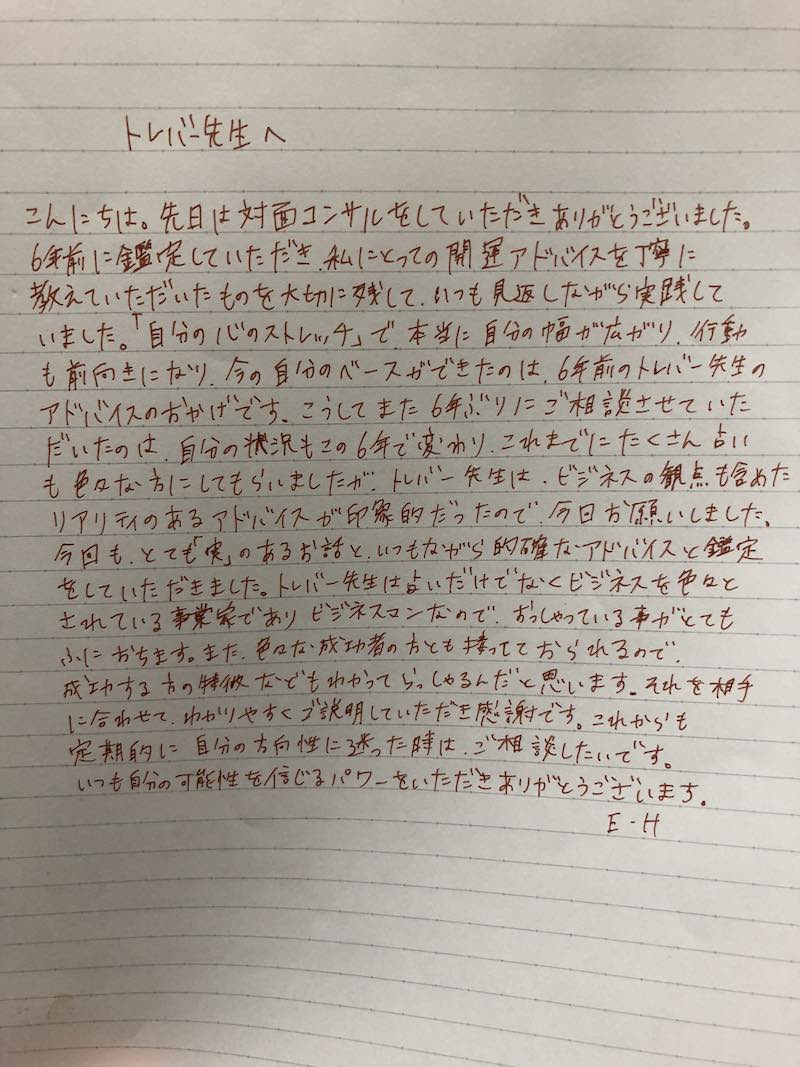 トレバー先生へ
こんにちは。先日は対面コンサルをしていただきありがとうございました。
6年前に鑑定していただき、私にとっての開運アドバイスを丁寧に
教えていただいたものを大切に残して、いつも見返しながら実践して
いました。「自分の心のストレッチ」で、本当に自分の幅が広がり、行動
も前向きになり、今の自分のベースができたのは、6年前のトレバー先生の
アドバイスのおかげです。こうしてまた6年ぶりにご相談させていた
だいたのは、自分の状況もこの6年で変わり、これまでにたくさん占い
も色々な方にしてもらいましたが、トレバー先生は、ビジネスの観点も含めた
リアリティのあるアドバイスが印象的だったので、今回お願いしました。
今回も、とても「実」のあるお話と、いつもながら的確なアドバイスと鑑定
をしていただきました。トレバー先生は占いだけでなくビジネスを色々と
されている事業家でありビジネスマンなので、おっしゃっている事がとても
ふにおちます。また、色々な成功者の方とも接してておられるので、
成功する方の特徴などもわかってらっしゃるんだと思います。それを相手
に合わせて、わかりやすくご説明していただき感謝です。これからも
定期的に自分の方向性に迷った時は、ご相談したいです。
いつも自分の可能性を信じるパワーをいただきありがとうございます。
E-H